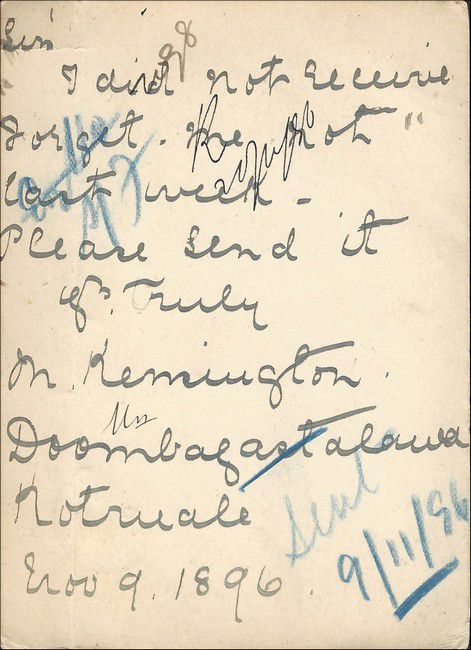 Sir
" I did not receive
Forget-me-not "
last week -
Please send it
Yrs. Truly
M. Remington.
Mrs
Doombagastalawa
Kotmale
Nov 9. 1896.
Sent
9/11/96